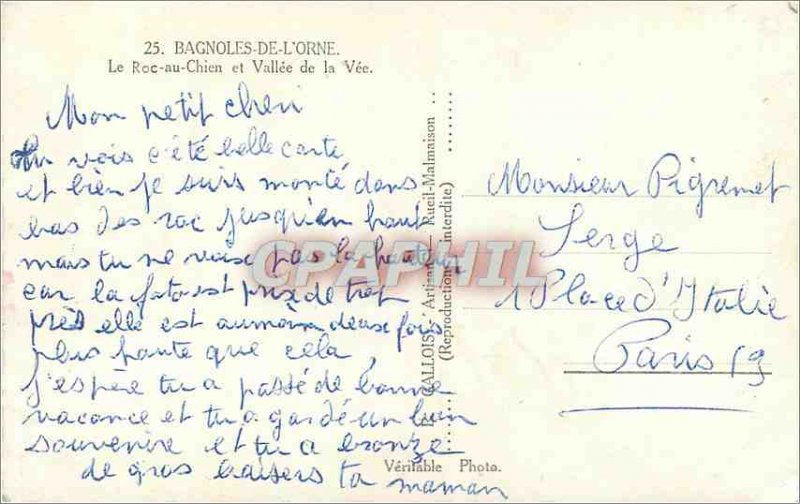 25. BAGNOLES-DE-L'ORNE.
Le Roc-au-Chien et Vallée de la Vée.
Mon petit cheri
Tu vois c'été belle carte,
et bien je suis monté dans
bas des roc jusqu'en haut
mais tu ne voise pas la hauteur
car la foto est prix de trop
près elle est aumoins deux fois
plus haute que cela,
j'espère tu a passé de bonne
vacance et tu a gardé un bon
souvenire et tu a bronze
de gros baisers ta maman
GALLOIS Artisan Rueil-Malmaison
(Reproduction interdite)
Véritable Photo.
Monsieur Pigremet
Serge
1 Place d'Italie
Paris 13
CPAPHIL